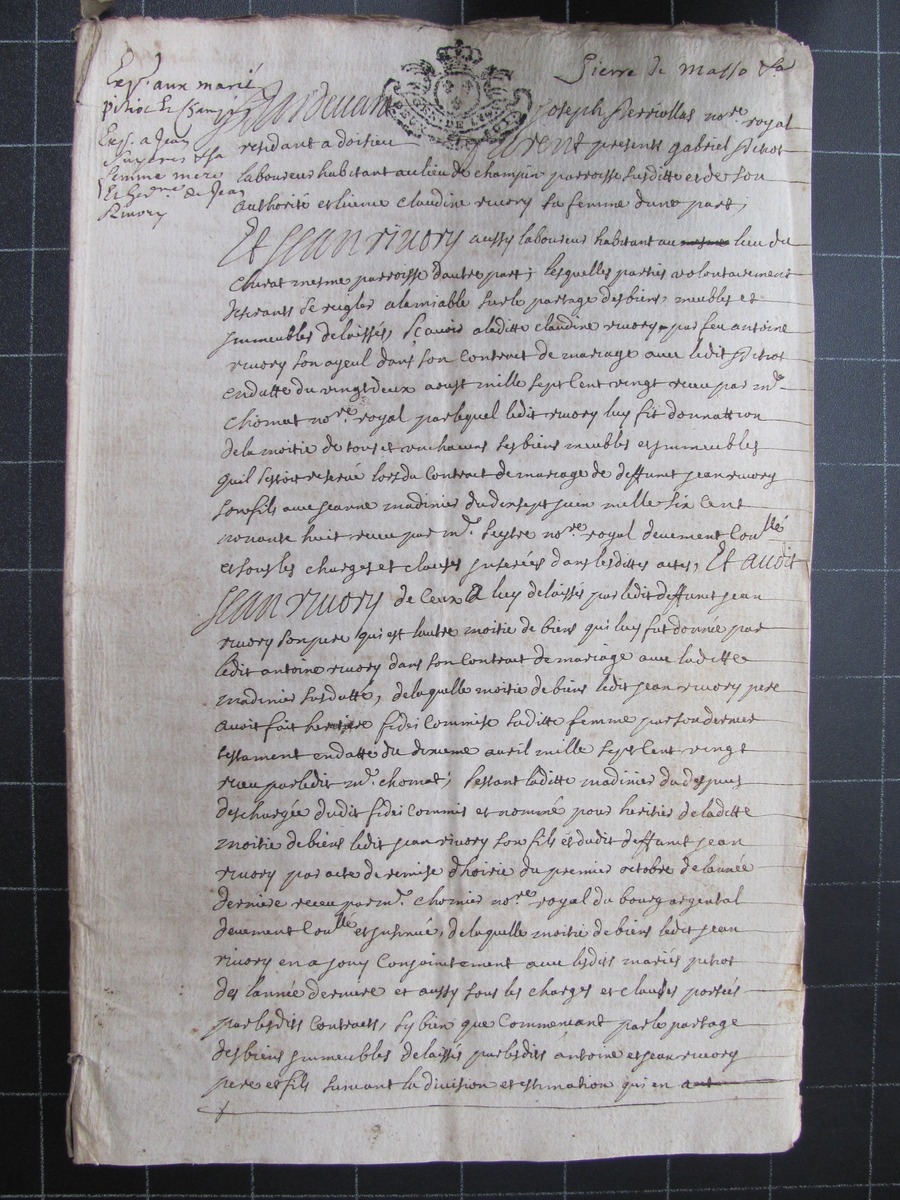 Pierre de masso &a
Exp. aux marié
pitiot et
Exp. a Jean
femme mere
de Jean
Rivory
Pardevant Joseph Perriollas nore royal
residant a doisieu furent presents gabriel pitiot
laboureur habitant au lieu de champin parroisse susditte et de son
authorité et licence claudine rivory sa femme dune part;
Et Jean rivory aussy laboureur habitant au lieu du
mesme parroisse dautre part; lesquelles parties volontairement
desirants se reigler alamiable sur le partage des biens, meubles et
jmmeubles delaissés, scavoir a laditte claudine rivory par feu antoine
rivory son ayeul dans son contract de mariage avec ledit pitiot
en datte du vingt deux aoust mille sept cent vingt receu par me
chomat nore royal par lequel ledit rivory luy fit donnattion
de la moitié de tous et un chacuns ses biens meubles et jmmeubles
quil sestoit reservé lors du contract de mariage de deffunct jean rivory
son fils avec jeanne madinier du dixsept juin mille six cent
nonante huit receu par me. seystre nore royal deuement coullé
et sous les charges et clauses jnserées dans lesdittes actes, Et audit
Jean rivory de ceux a luy delaissés par ledit deffunct jean
rivory son pere qui est lautre moitié de biens qui luy fut donnée par
ledit antoine rivory dans son contract de mariage avec laditte
madinier susdatté, de laquelle moitié de biens ledit jean rivory pere
avoit fait heritiere fidei commise laditte femme par son dernier
testament en datte du dixieme avril mille sept cent vingt
receu par ledit me. chomat; sestant laditte madinier du despuis
deschargée dudit fidei commis et nommé pour heritier de laditte
moitié de biens ledit jean rivory son fils et dudit deffunct jean
rivory par acte de remise dhoirie du premier octobre de lannée
derniere receu par me. chomier nore royal du bourg argental
deuement coullé et jnsinué, de laquelle moitié de biens ledit jean
rivory en a jouy conjointement avec lesdits mariés pitiot
des lannée derniere et aussy sous les charges et clauses portées
par lesdits contracts, sy bien que commencant par le partage
des biens jmmeubles delaissés par lesdits antoine et jean rivory
pere et fils suivant la division et estimation qui en a